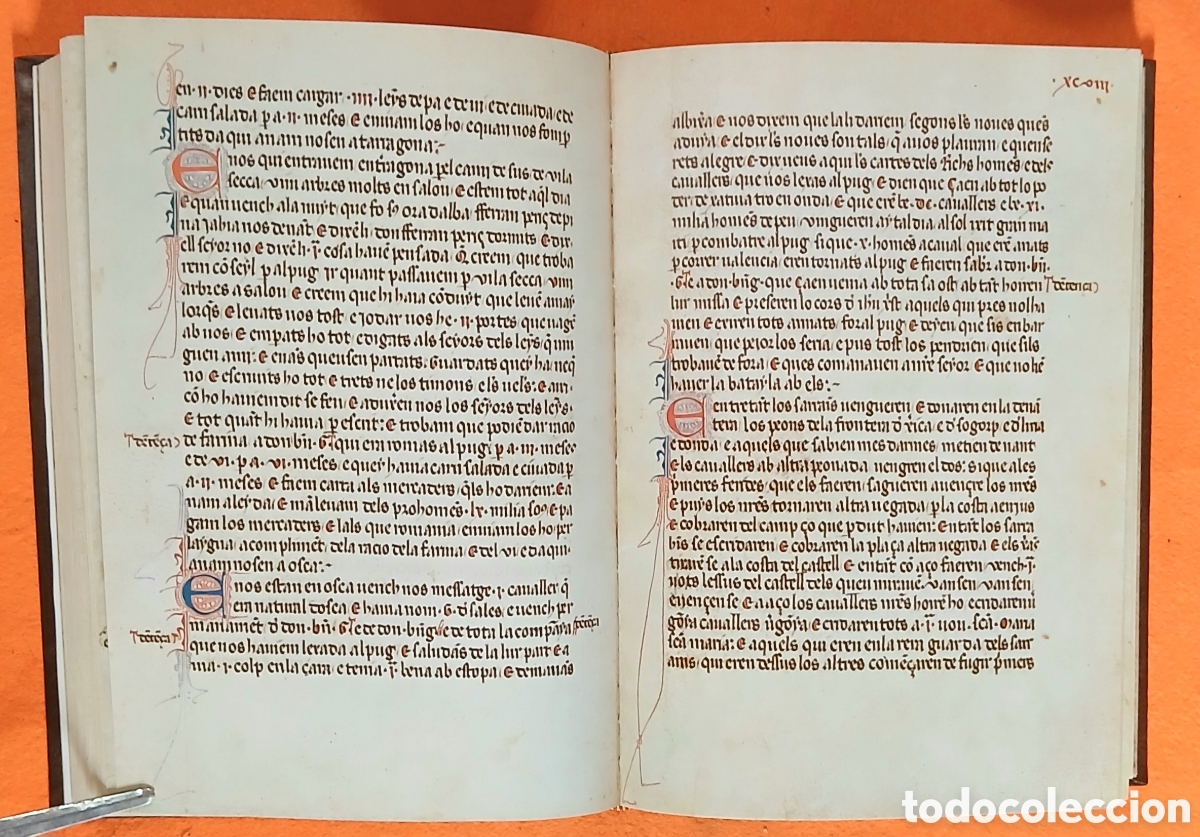 en ·ii· dies e faem cargar ·iiii· leyns de pa e de ui e de ciuada e de
carn salada p̲ a ·ii· meses e enuiam los ho e quan nos fom p̲
tits da qui anam nos en a tarragona:~
E nos qui entrauem en t̅ragona p̲el cami de sus de uila
secca uim arbres molts en salou e estem tot aq̅l dia
e quan uench a la nuyt que fo ora dalba ferran
na i auia nos denant e dixe̅li don ferran dormits e dix
ell seyor no e dixe̅li ·i̅· cosa haue̅ pensada q̅ creem que troba
rem co̅seyl p̲ al puig ir quant passauem p̲ uila secca uim
arbres a salou e creem que hi haia co̅duyt que leue̅ a may
lorq̅s e leuats nos tost e
ab nos e empats ho tot e digats als seyors dels leyns q̅ uin
guen a mi e enans quen sen partats guardats que y ha ne̅
no e escriuits ho tot e trets ne los timons e ls uels e axi
co̅ ho hauiem dit se feu e adure̅n nos los seyors dels leyns
e tot qua̅t hi hauia p̲ escrit e trobam que podie̅ dar racio
de farina a don b̅n̅ ·G̅· qui era romas al puig p̲ a ·iii· meses
e de ui p̲ a ·vi· meses e que y hauia carn salada e ciuada p̲
a ·ii· meses e faem carta als mercaders q̅ls ho dariem e a
nam a leyda e maleuam dels prohomes ·lx· milia sol̅ e pa
gam los mercaders e lals que romania enuiam los ho per
laygua a compliment de la racio de la farina e del ui e da qui
auam nos en a osca:~
E nos estan en osca uench nos messatge ·i· caualler q̅
era natural dosca e hauia nom ·G̅· d̅ sales e uench per
manament d̅ don b̅n̅ ·G̅· e de don b̅n̅g̅ e de tota la compa̅ya
que nos hauiem lexada al puig e saludans de la lur part e a
uia ·i· colp en la cara e tenia ·i̅· bena ab estopa e demanans
dente̅ça
dente̅ça
dente̅ça
·xcviii·
albix̅a e nos dixem que lah dariem segons l̅s noues que n̅s
aduya e ell dix l̅s noues son tals q̅ a uos plauran e quen se
rets alegre e dix ueus aqui l̅s cartes dels richs homes e dels
cauallers que uos lexas al puig e dien que çaen ab tot lo po
der de xatiua tro en onda e que ere̅ be ·dc· cauallers e be ·xi·
milia homes de peu uingueren aytal dia al sol ixit gran ma
ti p̲ combatre al puig si que ·x· homes a caual que ere̅ anats
p̲ correr ualencia eren tornats al puig e faeren sab̅ a don ·b̅n̅·
·G̅· e a don ·b̅n̅g̅· que çaen uenia ab tota sa ost ab ta̅t hoiren
lur missa e preseren lo cors d̅ ih̅u x̅st aquels qui pres nol ha
uien e exiren tots armats foral puig e deyen que sis en bar
rauen que peior los seria e pus tost los pendrien que sils
trobaue̅ de fora e ques comanauen a n̅re seyor e que uolie̅
hauer la batayla ab els:~
E entreta̅t los sarrai̅s uengueren e donaren en la dena̅
tera los peons de la frontera d̅ xerica e d̅ sogorp e d̅ liria
e donda e aquels que sabien mes darmes metien denant
e ls cauallers ab altra peonada uengren el dos si que a les
p̅meres ferides que els faeren sagueren a ue̅çre los n̅res
e puys los n̅res tornaren altra uegada p̲ la costa a enius
e cobraren del camp ço que p̲dut hauien e enta̅t los sarra
hi̅s se escridaren e cobraren la plaça altra uegada e els
tirare̅ se a la costa del castell e enta̅t co̅ aço faeren uench ·i̅·
uots lessus del castell dels quen miraue̅ uan sen uan sen
e uençen se e a aço los cauallers n̅res hoire̅ ho e cridaren u̅
go̅ya cauallers u̅go̅ya e cridaren tots a ·i̅· uou sc̅a̅ maria
sc̅a̅ maria e aquels qui eren en la reraguarda dels sar
rains qui eren dessus los altres come̅çaren de fugir p̅mers
dente̅ça
todocoleccion